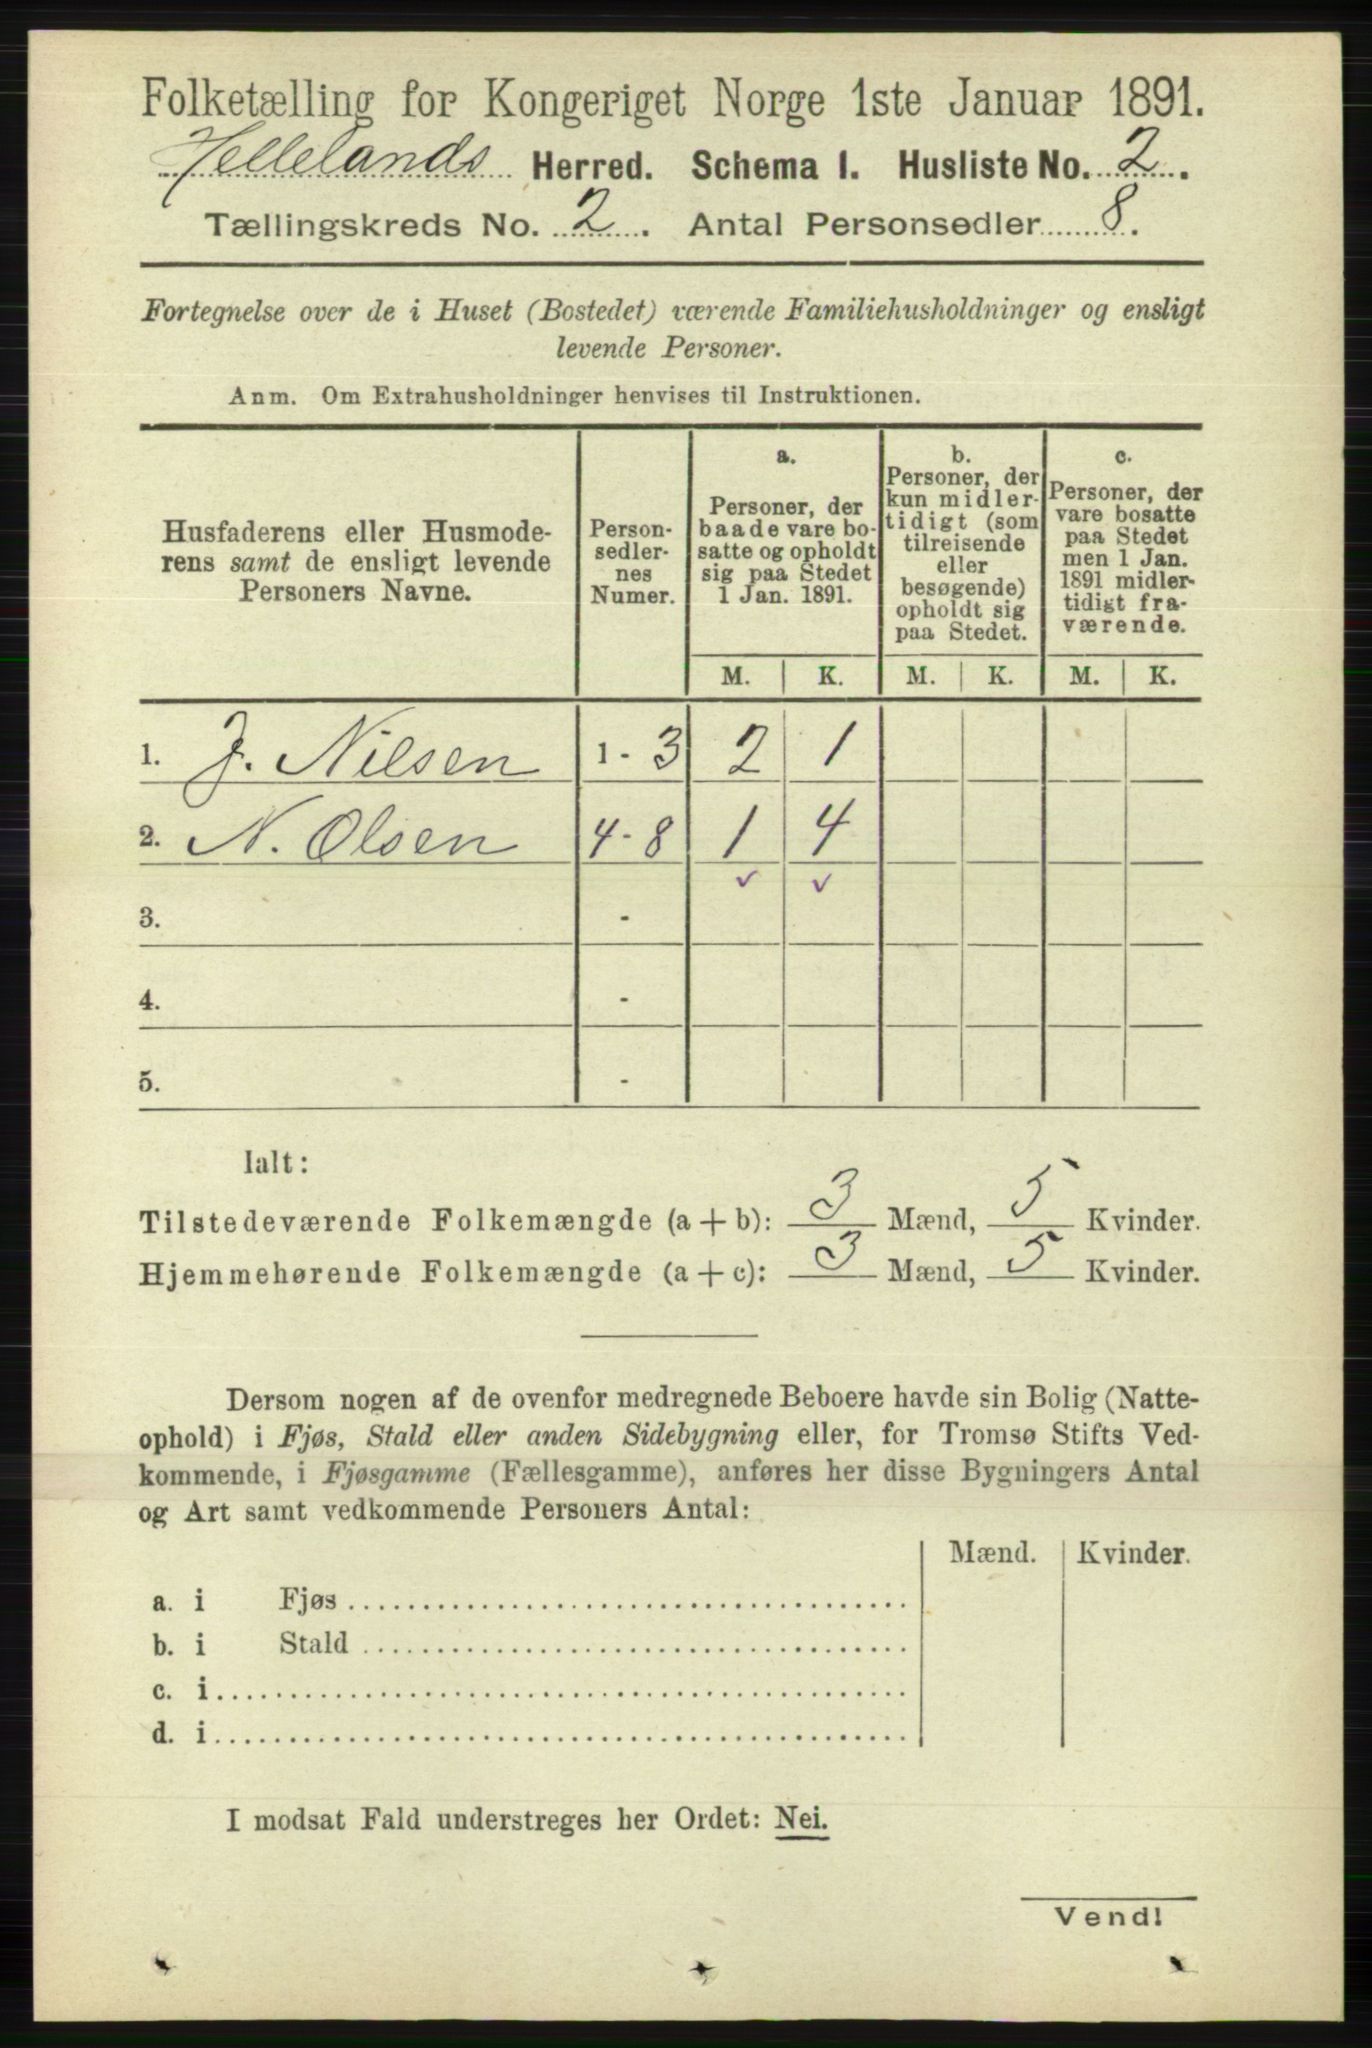 Folketælling for Kongeriget Norge 1ste Januar 1891.
Hellelands Herred. Schema I. Husliste No. 2.
Tællingskreds No. 2. Antal Personsedler 8.
Fortegnelse over de i Huset (Bostedet) værende Familiehusholdninger og ensligt
levende Personer.
Anm. Om Extrahusholdninger henvises til Instruktionen.
Husfaderens eller Husmode-
rens samt de ensligt levende
Personers Navne.
Person-
sedler-
nes
Numer.
a.
Personer, der
baade vare bo-
satte og opholdt
sig paa Stedet
1 Jan. 1891.
b.
Personer, der
kun midler-
tidigt (som
tilreisende
eller
besøgende)
opholdt sig
paa Stedet.
c.
Personer, der
vare bosatte
paa Stedet
men 1 Jan.
1891 midler-
tidigt fra-
værende.
M. K. M. K. M. K.
1. J. Nilsen 1 - 3 2 1
2. N. Olsen 4 - 8 1 4
✓ ✓
3. -
4. -
5. -
Ialt:
Tilstedeværende Folkemængde (a + b): 3 Mænd, 5 Kvinder.
Hjemmehørende Folkemængde (a + c): 3 Mænd, 5 Kvinder.
Dersom nogen af de ovenfor medregnede Beboere havde sin Bolig (Natte-
ophold) i Fjøs, Stald eller anden Sidebygning eller, for Tromsø Stifts Ved-
kommende, i Fjøsgamme (Fællesgamme), anføres her disse Bygningers Antal
og Art samt vedkommende Personers Antal:
Mænd. Kvinder.
a. i Fjøs
b. i Stald
c. i
d. i
I modsat Fald understreges her Ordet: Nei.
Vend!